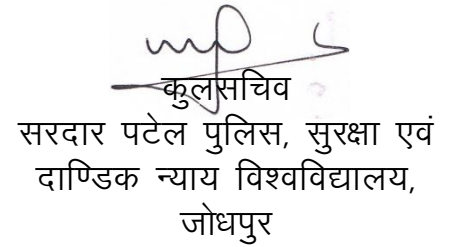 कुलसचिव
सरदार पटेल पुलिस, सुरक्षा एवं
दाण्डिक न्याय विश्वविद्यालय,
जोधपुर